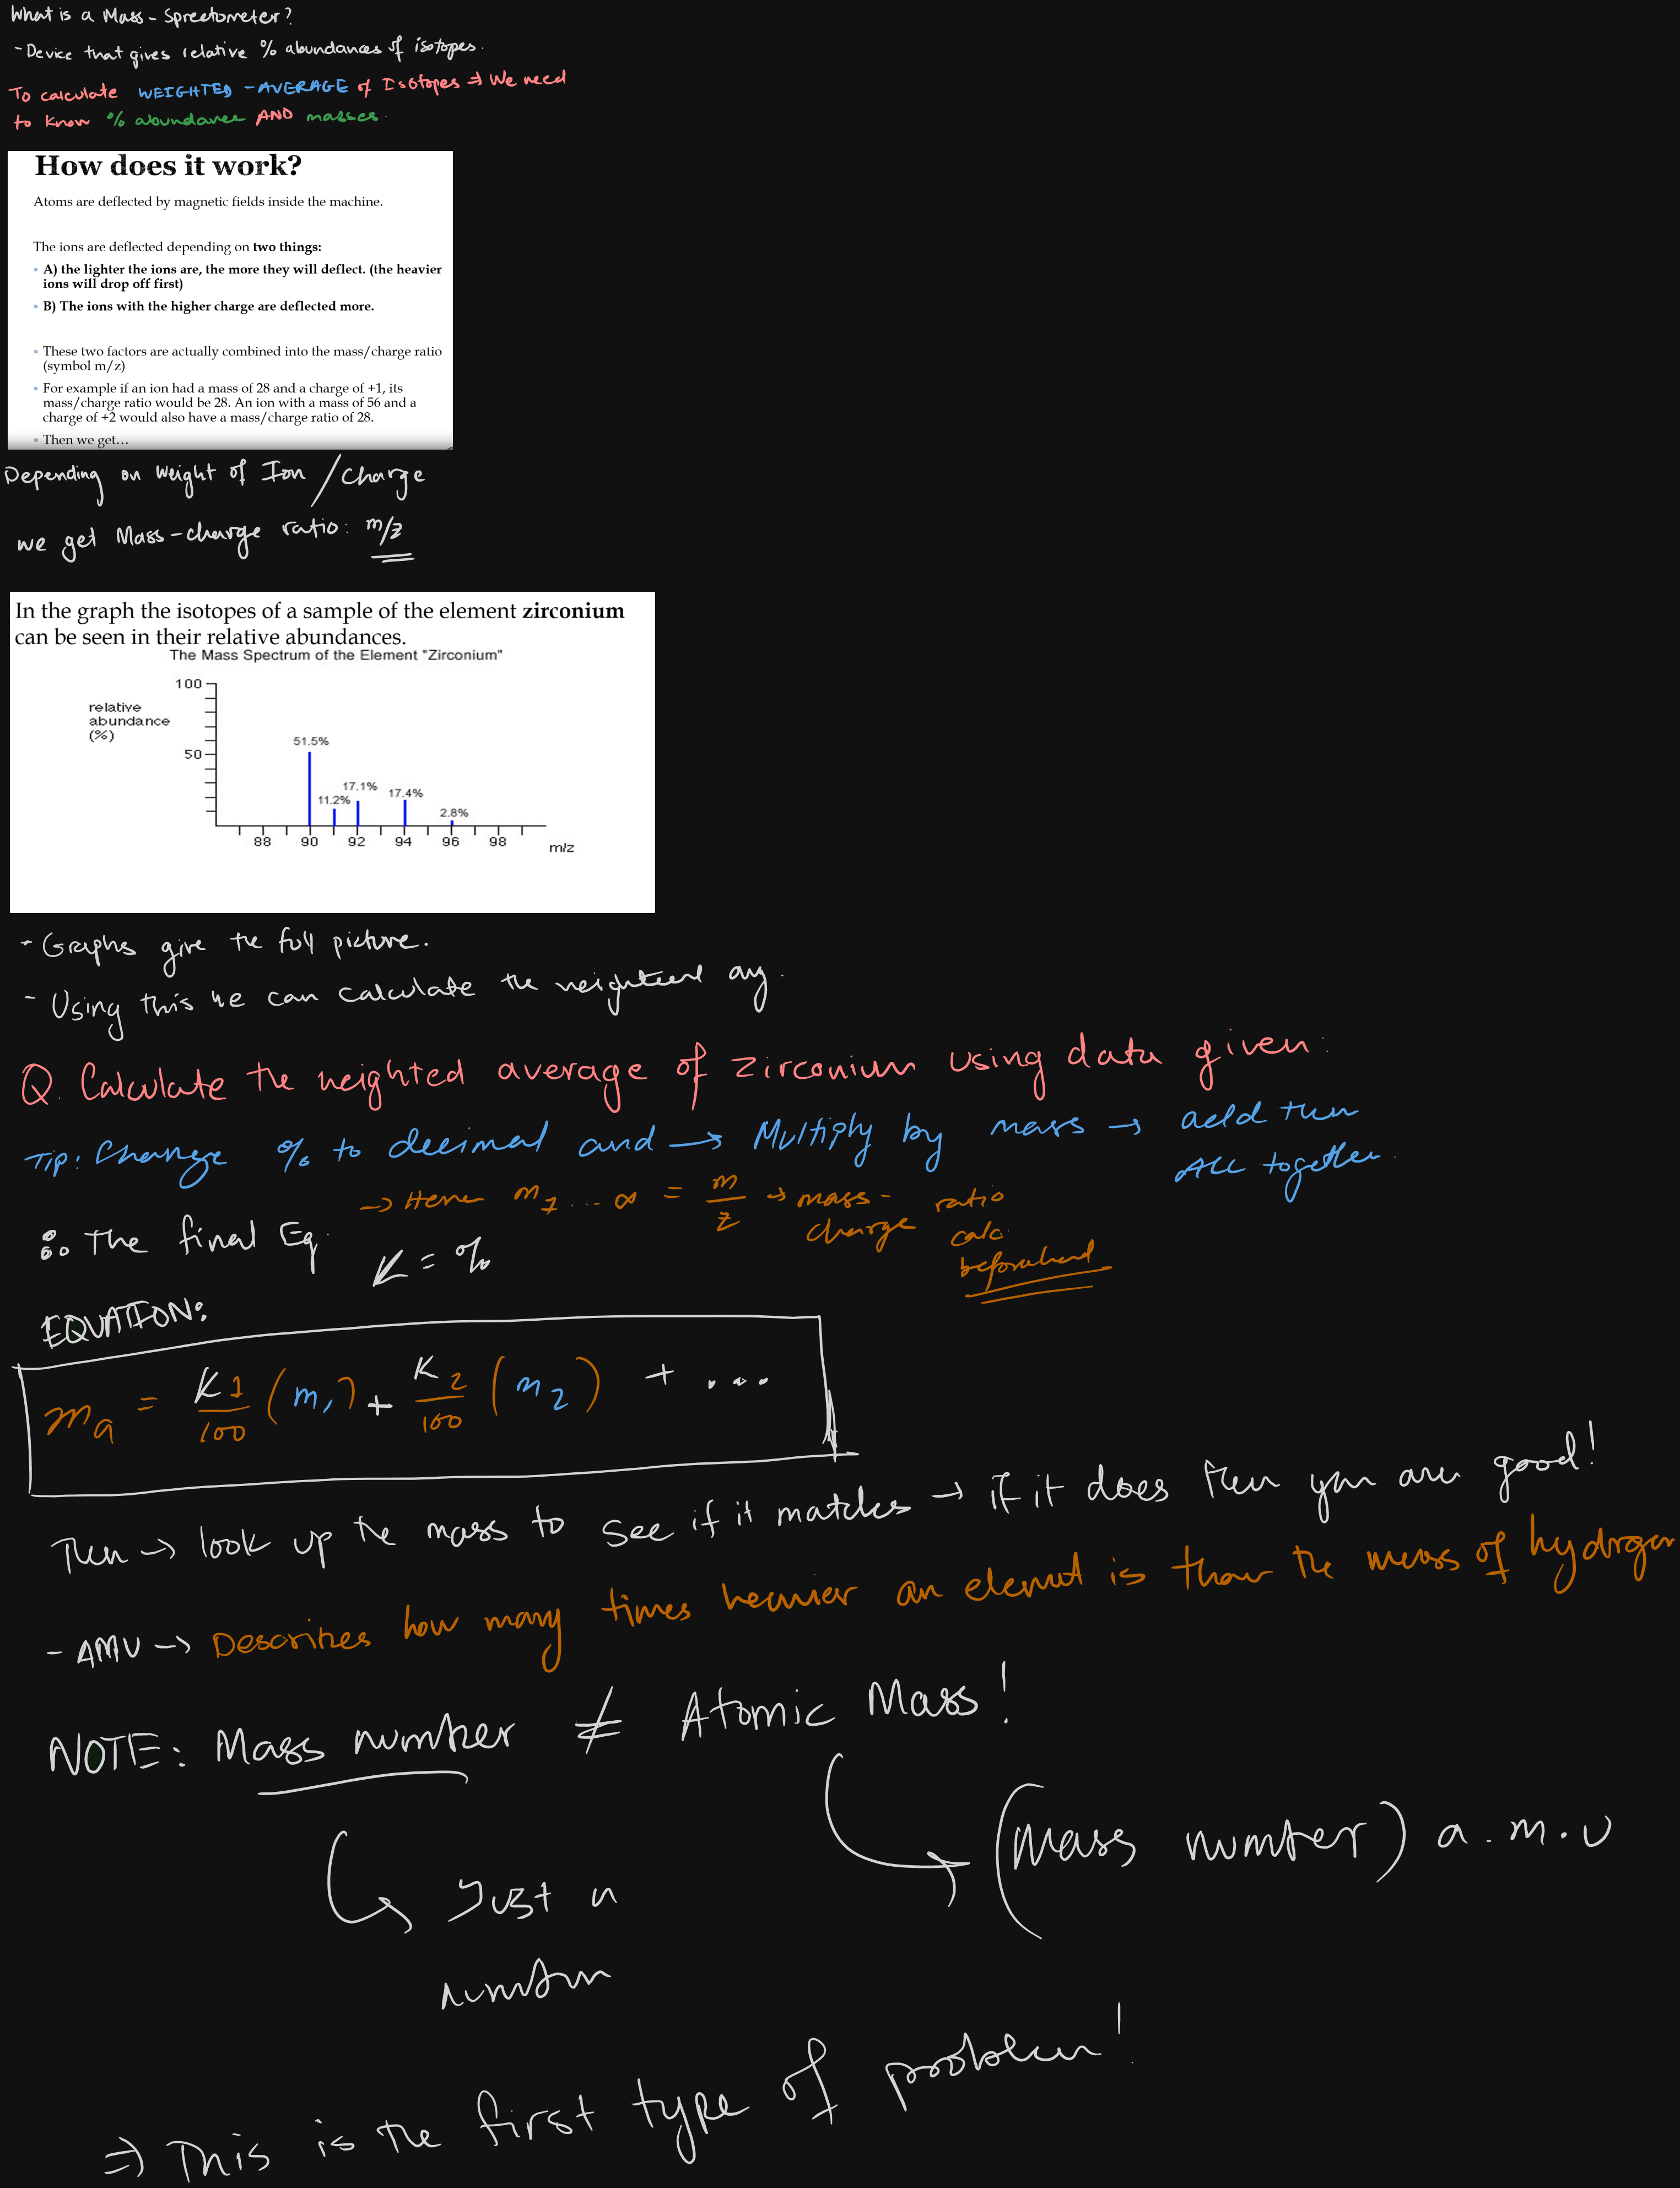 What is a Mass-Spreetometer?
- Device that gives relative % abundances of isotopes.
To calculate WEIGHTED-AVERAGE of Isotopes ⇒ We need
to know % abundance AND masses.
How does it work?
Atoms are deflected by magnetic fields inside the machine.
The ions are deflected depending on two things:
▪ A) the lighter the ions are, the more they will deflect. (the heavier
ions will drop off first)
▪ B) The ions with the higher charge are deflected more.
▪ These two factors are actually combined into the mass/charge ratio
(symbol m/z)
▪ For example if an ion had a mass of 28 and a charge of +1, its
mass/charge ratio would be 28. An ion with a mass of 56 and a
charge of +2 would also have a mass/charge ratio of 28.
▪ Then we get…
Depending on weight of Ion / Charge
we get Mass-charge ratio: m/z
In the graph the isotopes of a sample of the element zirconium
can be seen in their relative abundances.
The Mass Spectrum of the Element "Zirconium"
100
relative
abundance
(%)
50
51.5%
11.2%
17.1%
17.4%
2.8%
88 90 92 94 96 98
m/z
- Graphs give the full picture.
- Using this we can calculate the weighted avg.
Q. Calculate the weighted average of Zirconium using data given:
Tip: Change % to decimal and → Multiply by mass → add them
ALL together.
→ Hence m1 ... ∞ = m/z → mass-charge ratio
calc.
beforehand
∴ The final Eq.
K = %
EQUATION:
ma = K1/100 (m1) + K2/100 (m2) + ...
Then → look up the mass to see if it matches → if it does then you are good!
- AMU → Describes how many times heavier an element is than the mass of hydrogen
NOTE: Mass number ≠ Atomic Mass!
(Mass number) a.m.u
Just a
number
⇒ This is the first type of problem!